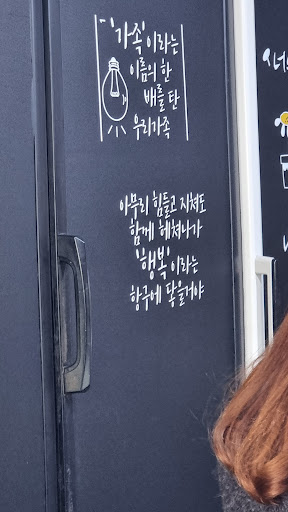 '가족'이라는
이름의 한
배를 탄
우리가족
아무리 힘들고 지쳐도
함께 헤쳐나가
'행복'이라는
항구에 닿을거야
시너